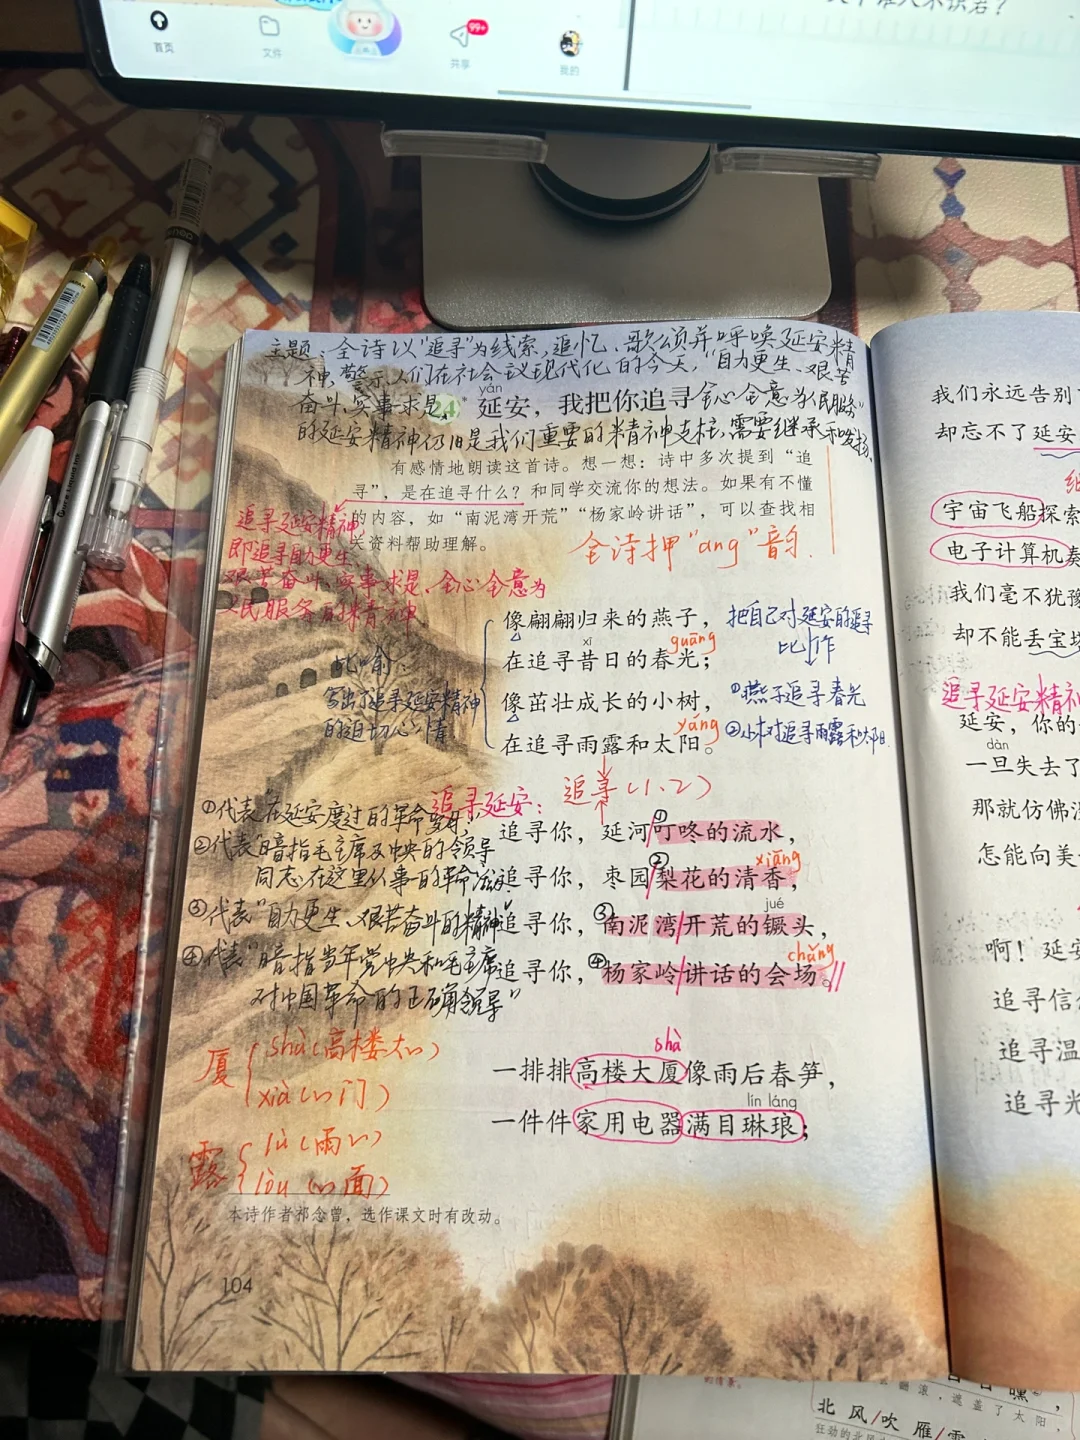 首页
文件
99+
共享
我的
主题：全诗以"追寻"为线索，追忆、歌颂并呼唤延安精
神，警示人们在社会主义现代化的今天，"自力更生、艰苦
奋斗、实事求是、全心全意为人民服务"
yán
24* 延安，我把你追寻
的延安精神仍旧是我们重要的精神支柱，需要继承和发扬。
有感情地朗读这首诗。想一想：诗中多次提到“追
寻”，是在追寻什么？和同学交流你的想法。如果有不懂
的内容，如“南泥湾开荒”“杨家岭讲话”，可以查找相
关资料帮助理解。
全诗押"ang"韵.
追寻延安精神
即追寻自力更生、
艰苦奋斗、实事求是、全心全意为
人民服务的精神
像翩翩归来的燕子，
把自己对延安的追寻
比作
xī
guāng
在追寻昔日的春光；
比喻：
写出了追寻延安精神
的迫切心情
像茁壮成长的小树，
①燕子追寻春光
yáng
在追寻雨露和太阳。
②小树追寻雨露和太阳.
追寻延安：
追寻(1、2)
①代表"在延安度过的革命岁月"
追寻你，延河①叮咚的流水，
②代表"音指毛主席及中央的领导
同志在这里从事的革命活动"
xiāng
追寻你，枣园②梨花的清香，
③代表"自力更生、艰苦奋斗的精神"
jué
追寻你，③南泥湾开荒的镢头，
④代表"音指当年党中央和毛主席
对中国革命的正确领导"
chǎng
追寻你，④杨家岭讲话的会场。
厦
shà(高楼大~)
xià(~门)
shà
一排排高楼大厦像雨后春笋，
lín láng
一件件家用电器满目琳琅；
露
lù(雨~)
lòu(~面)
本诗作者祁念曾，选作课文时有改动。
104
我们永远告别
却忘不了延安
宇宙飞船探索
电子计算机奏
我们毫不犹豫
却不能丢宝塔
追寻延安精神
延安，你的
dàn
一旦失去了
那就仿佛没
怎能向美
啊！延安
追寻信
追寻温
追寻光
北风吹雁雪